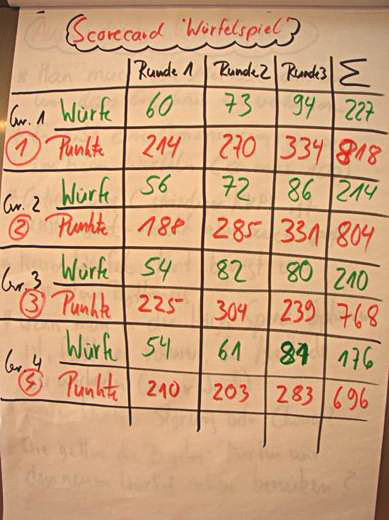 Scorecard "Würfelspiel"
Runde 1 Runde 2 Runde 3 Σ
Gr. 1 Würfe 60 73 94 227
1 Punkte 214 270 334 818
Gr. 2 Würfe 56 72 86 214
2 Punkte 188 285 331 804
Gr. 3 Würfe 54 82 80 210
3 Punkte 225 304 239 768
Gr. 4 Würfe 54 61 176
Punkte 210 203 283 696